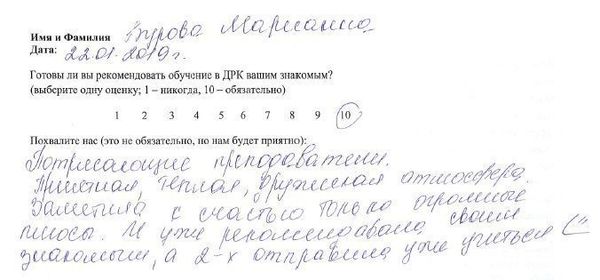 Имя и Фамилия Бурова Марианна
Дата: 22.01.2019г.
Готовы ли вы рекомендовать обучение в ДРК вашим знакомым?
(выберите одну оценку; 1 – никогда, 10 – обязательно)
1 2 3 4 5 6 7 8 9 10
Похвалите нас (это не обязательно, но нам будет приятно):
Потрясающие преподаватели.
Приятная, тёплая, дружеская атмосфера.
Заметила к счастью только огромные
плюсы. И уже рекомендовала своим
знакомым, а 2-х отправила уже учиться (¨